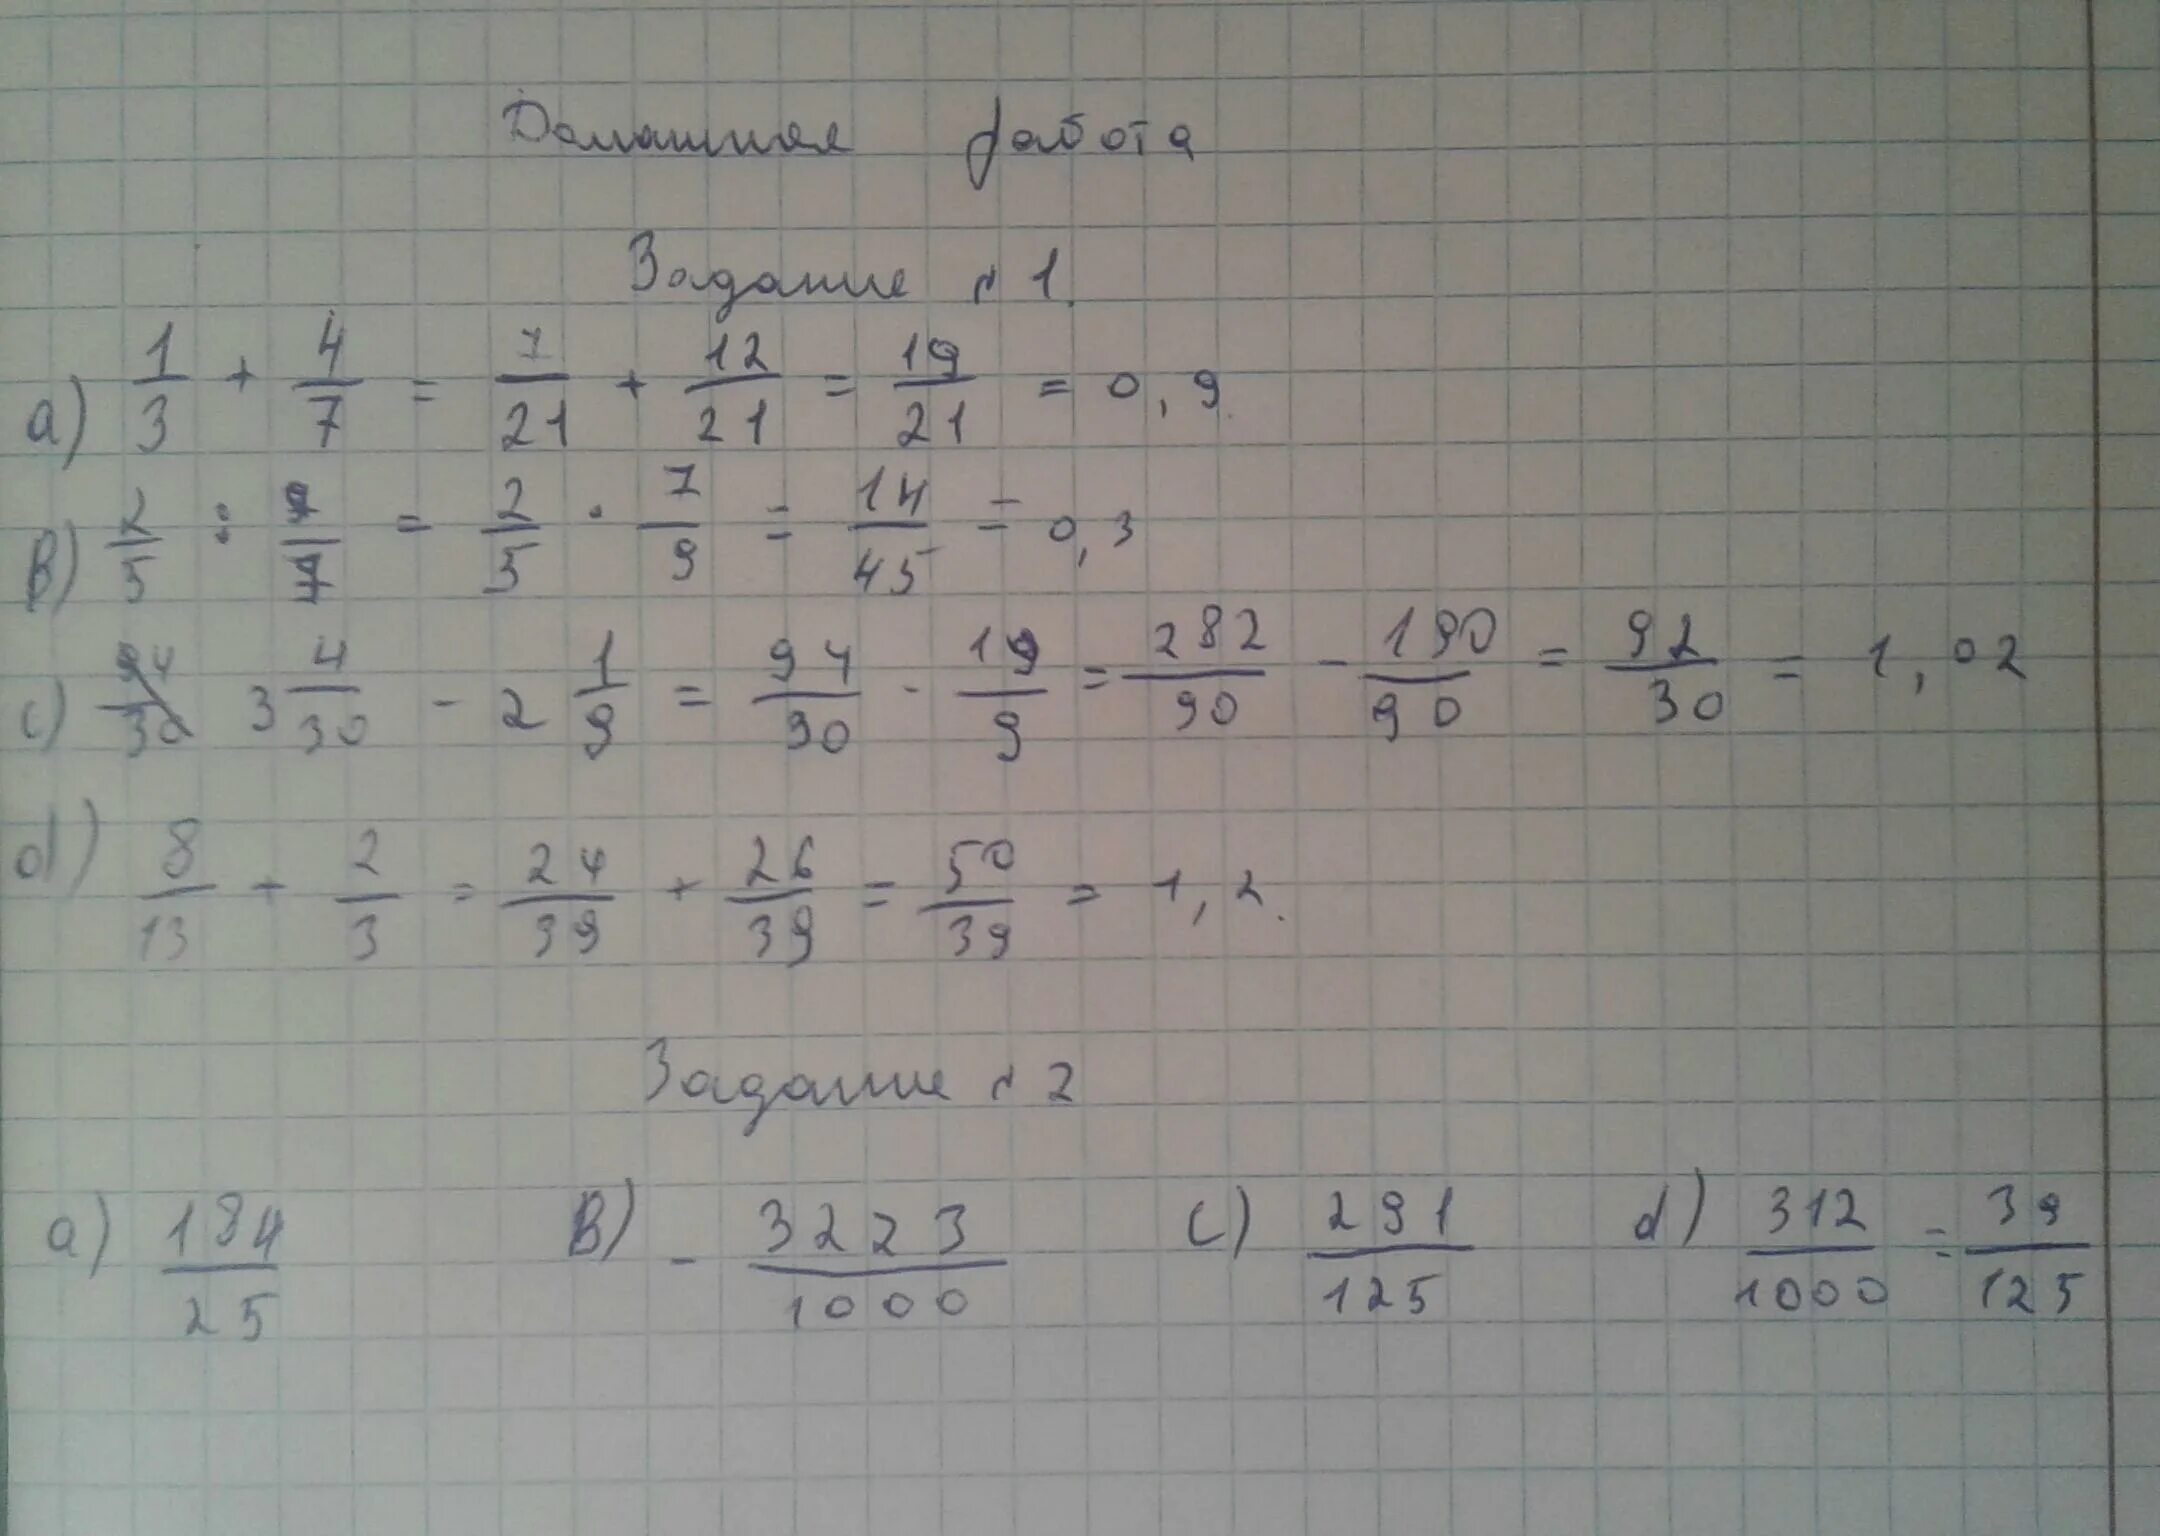 Домашняя работа
Задание № 1.
a) 1/3 + 4/7 = 7/21 + 12/21 = 19/21 = 0,9.
b) 2/5 : 9/7 = 2/5 · 7/9 = 14/45 = 0,3
c) 3 4/30 - 2 1/9 = 94/30 - 19/9 = 282/90 - 190/90 = 92/90 = 1,02
d) 8/13 + 2/3 = 24/39 + 26/39 = 50/39 = 1,2.
Задание № 2
a) 184/25 b) - 3223/1000 c) 291/125 d) 312/1000 = 39/125